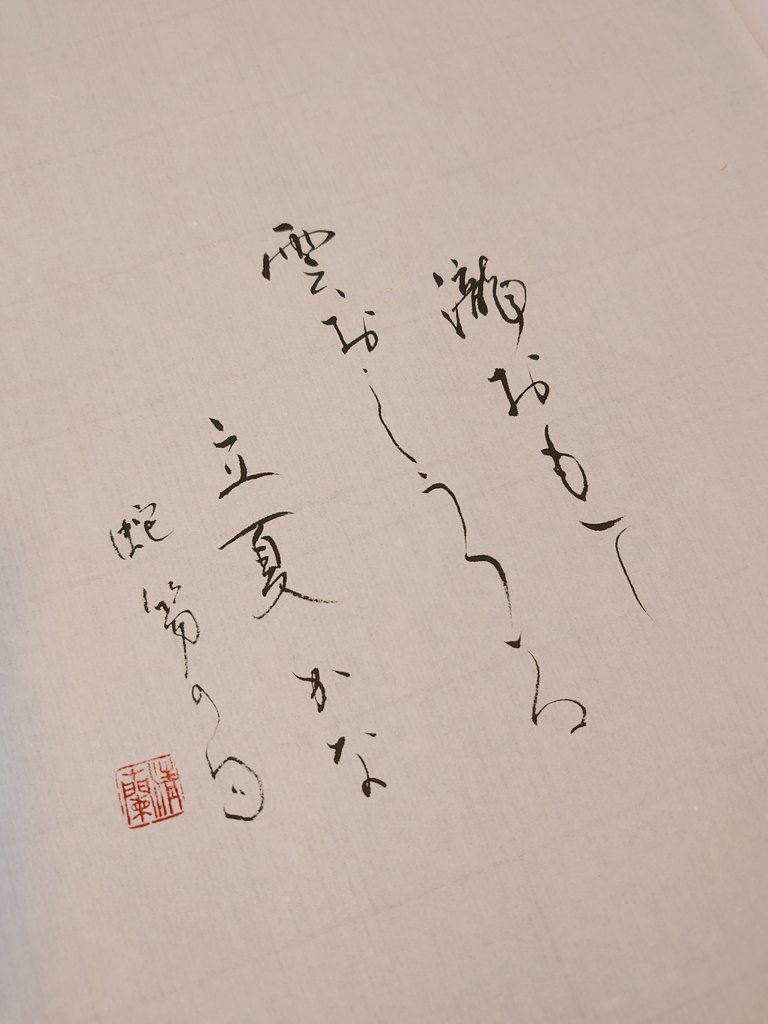 瀧おもて
雲おしうつる
立夏かな
蛇笏の句
清蘭